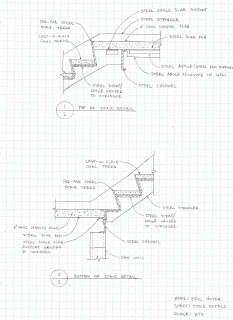 STEEL ANGLE SLAB SUPPORT
STEEL STRINGER
4" CONC LANDING SLAB
STEEL SLAB PAN
PRE-FAB STEEL
STAIR TREAD
CAST-IN-PLACE
CONC TREAD
STEEL ANGLE
STEEL CHANNEL
STEEL STUD/
ANGLE WELDED
TO STRINGER
1
2
TOP OF STAIR DETAIL
CAST-IN-PLACE
CONC TREAD
PRE-FAB STEEL
STAIR TREAD
STEEL STRINGER
STEEL STUD/
ANGLE WELDED
TO STRINGER
4" CONC LANDING SLAB
STEEL SLAB PAN
STEEL ANGLE SLAB
SUPPORT WELDED
TO CHANNEL
STEEL CHANNEL
CMU WALL
2
2
BOTTOM OF STAIR DETAIL
NAME: ERIC
SHEET: STAIR DETAILS
SCALE: NTS